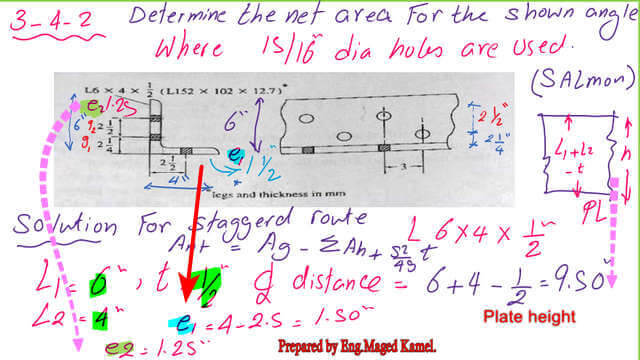 3-4-2 Determine the net area For the shown angle
Where 15/16" dia holes are used.
(SALmon)
L6 × 4 × 1/2 (L152 × 102 × 12.7)*
e2 1.25
6"
g2 2 1/2
g1 2 1/4
2 1/2
4"
6"
e1 1 1/2"
2 1/2"
2 1/4"
3
legs and thickness in mm
L1+L2
-t
h
PL
Solution For staggerd route
L 6×4×1/2"
Ant = Ag - ΣAh + S2/4g t
L1 = 6", t 1/2" ₵ distance = 6+4-1/2 = 9.50"
L2 = 4" e1 = 4-2.5 = 1.50"
Plate height
e2 = 1.25"
Prepared by Eng.Maged Kamel.